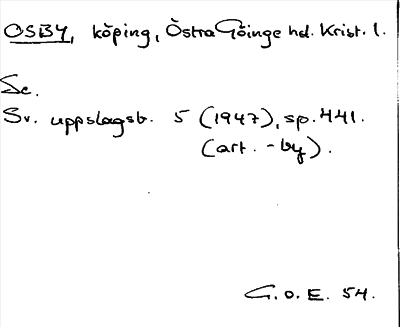 OSBY, köping, Östra Göinge hd. Krist. l.
Se.
Sv. uppslagsb. 5 (1947), sp. 441.
(art. -by).
G.O.E. 54.